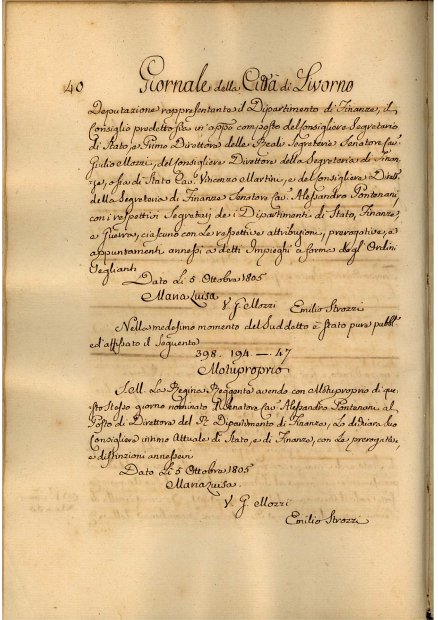 40 Giornale della Città di Livorno
Deputazione rappresentante il Dipartimento di Finanze, il
Consiglio predetto sia in app.e composto del Consigliere Segretario
di Stato, e Primo Direttore delle Reali Segreterie Senatore Cav.
Giulio Mozzi, del Consigliere Direttore della Segreteria di Finan-
ze, o sia di Stato Cav. Vincenzo Martini, e del Consigliere Dirett.
della Segreteria di Finanze Senatore Cav. Alessandro Pontenani,
con i respettivi Segretarj dei Dipartimenti di Stato, Finanze,
e Guerra, ciascuno con le respettive attribuzioni, prerogative, e
appuntamenti annessi a detti Impieghi a forma degl' Ordini
Veglianti
Dato Li 5 Ottobre 1805
Maria Luisa
V. G. Mozzi Emilio Strozzi
Nello medesimo momento del Suddetto è stato pure pubbl.
ed affissato il seguente
398. 194. — 47
Motuproprio
S. M. La Regina Reggente avendo con Motuproprio di que-
sto stesso giorno nominato il Senatore Cav. Alessandro Pontenani al
Posto di Direttore del R. Dipartimento di Finanze, Lo dichiara suo
Consigliere intimo Attuale di Stato, e di Finanze, con le prerogative,
e distinzioni annessevi
Dato Li 5 Ottobre 1805
Maria Luisa.
V. G. Mozzi
Emilio Strozzi